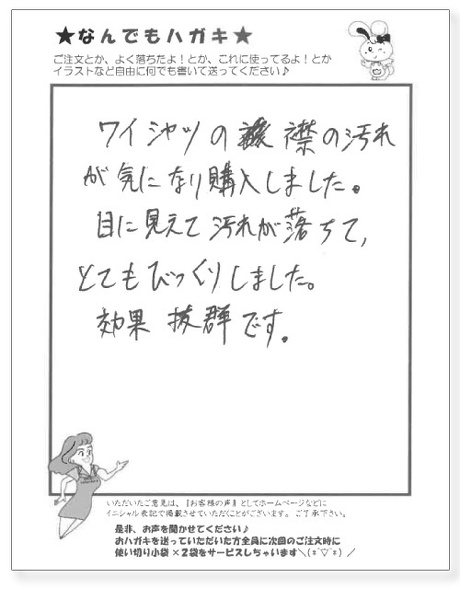 ★なんでもハガキ★
ご注文とか、よく落ちたよ！とか、これに使ってるよ！とか
イラストなど自由に何でも書いて送ってください♪
ワイシャツの襟の汚れ
が気になり購入しました。
目に見えて汚れが落ちて，
とてもびっくりしました。
効果 抜群です。
いただいたご意見は、『お客様の声』としてホームページなどに
イニシャル表記で掲載させていただくことがございます。ご了承下さい。
是非、お声を聞かせてください♪
おハガキを送っていただいた方全員に次回のご注文時に
使い切り小袋×2袋をサービスしちゃいます＼(≡ˆ▽ˆ≡)／